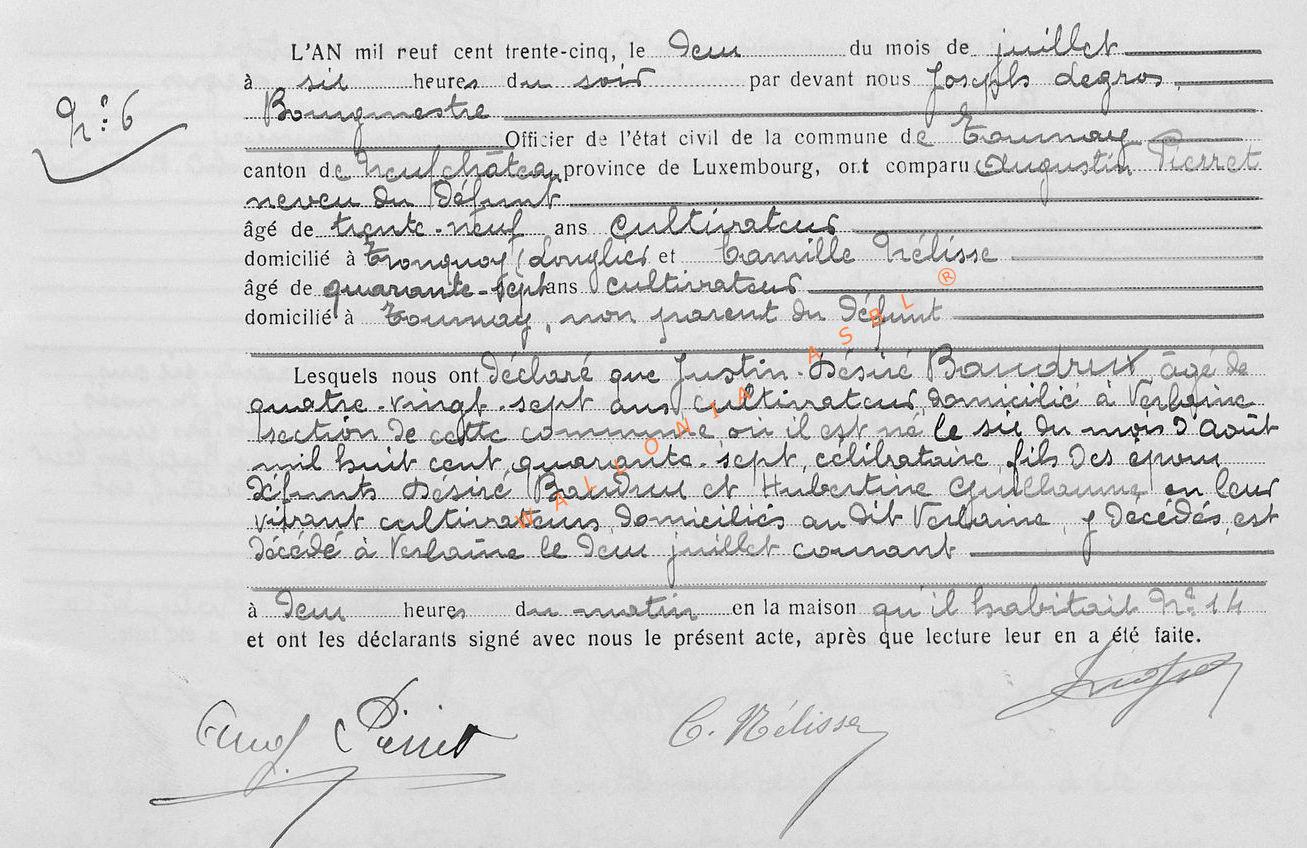 L'AN mil neuf cent trente-cinq, le deux du mois de juillet
à six heures du soir par devant nous Joseph Legros,
N:o 6
Bourgmestre
Officier de l'état civil de la commune de Tournay
canton de Neufchâteau province de Luxembourg, ont comparu Augustin Pierret
neveu du défunt
âgé de trente-neuf ans cultivateur
domicilié à Tronquoy (Longlier et Camille Nélisse
âgé de quarante-sept ans cultivateur
domicilié à Tournay, non parent du défunt
Lesquels nous ont déclaré que Justin-Désiré Baudrux âgé de
quatre-vingt-sept ans, cultivateur, domicilié à Verlaine
section de cette commune où il est né le six du mois d'août
mil huit cent quarante-sept, célibataire, fils des époux
défunts Désiré Baudrux et Hubertine Guillaume en leur
vivant cultivateurs domiciliés au dit Verlaine, y décédés, est
décédé à Verlaine le deux juillet courant
WALLONIA ASBL ®
à deux heures du matin en la maison qu'il habitait No 14
et ont les déclarants signé avec nous le présent acte, après que lecture leur en a été faite.
Aug Pierret C. Nélisse